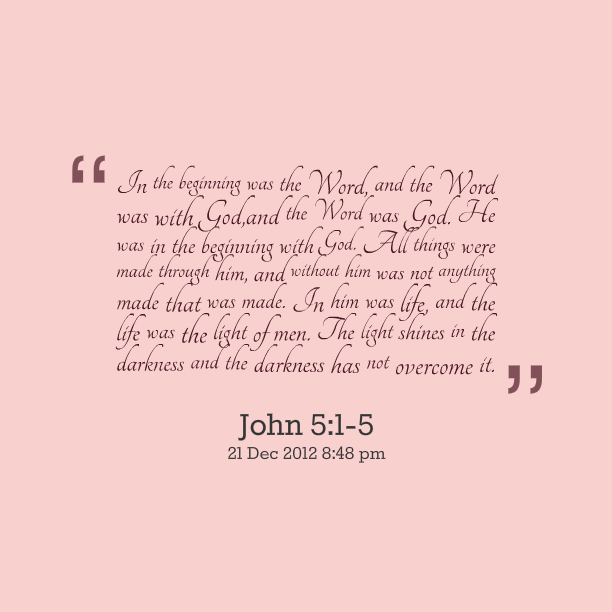 “ In the beginning was the Word, and the Word
was with God,and the Word was God. He
was in the beginning with God. All things were
made through him, and without him was not anything
made that was made. In him was life, and the
life was the light of men. The light shines in the
darkness and the darkness has not overcome it. ”
John 5:1-5
21 Dec 2012 8:48 pm